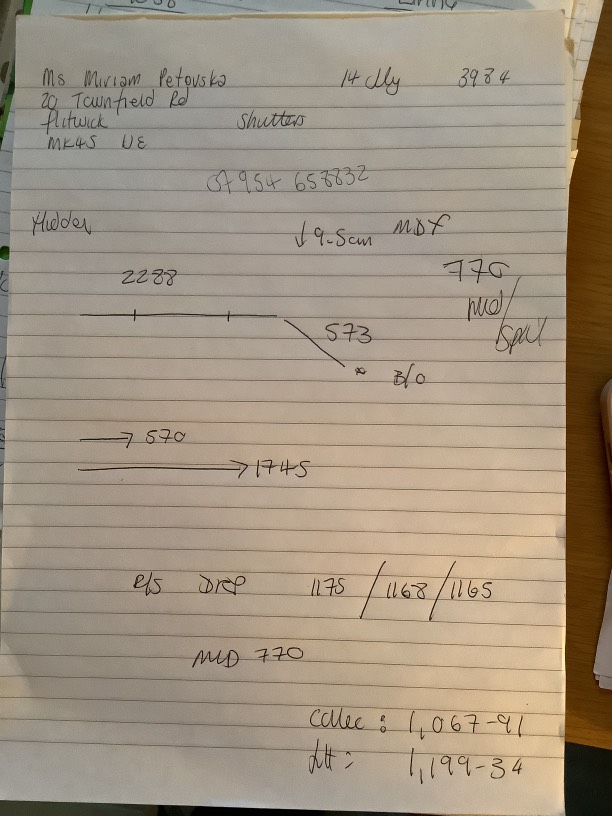 Ms Miriam Petovska 14 July 3984
20 Townfield Rd
flitwick Shutters
MK45 UE
07954 658832
Hidden ↓9-5cm MDF
2288 770
Mid/
Split
573
B/O
→ 570
→ 1745
R/S Drop 1175 / 1168 / 1165
MID 770
Collec : 1,067-91
1,199-34